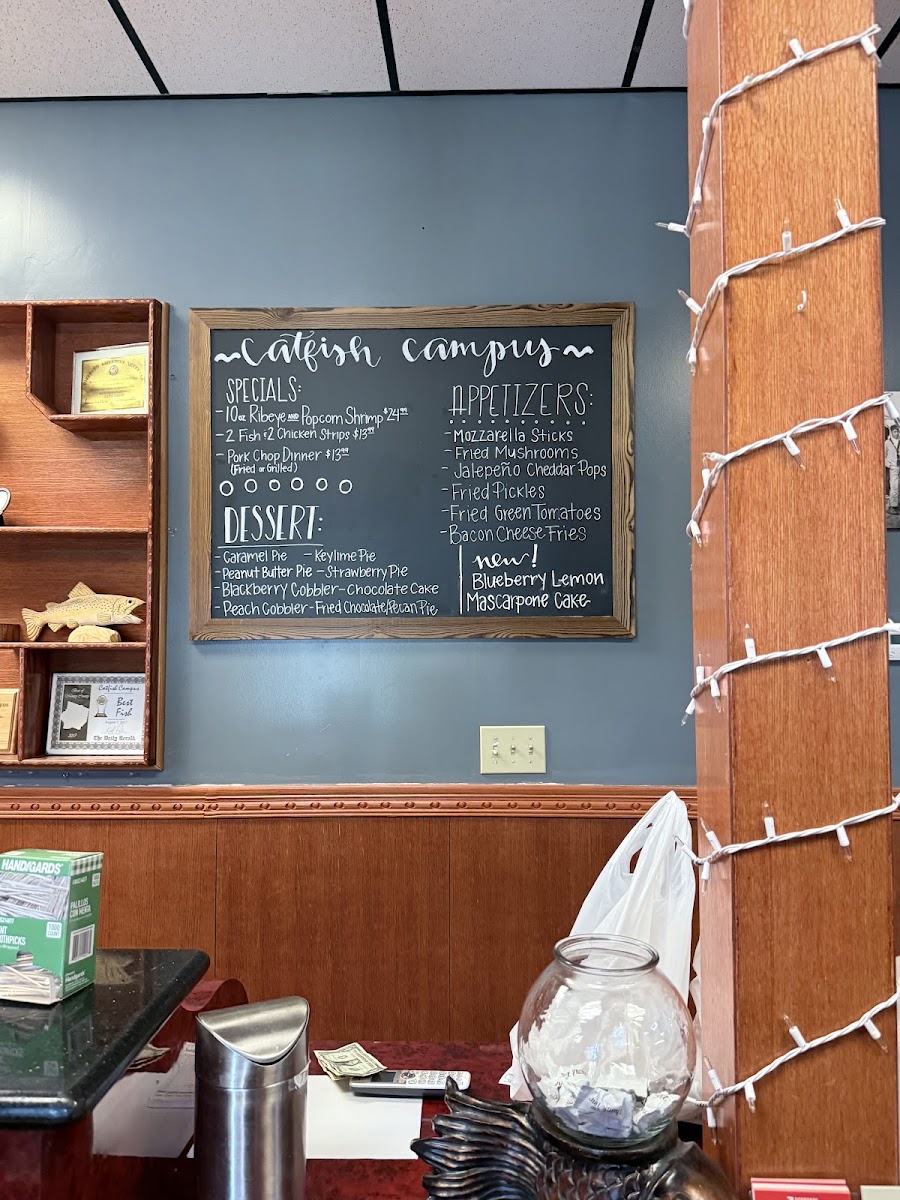 ~catfish campus~
SPECIALS:
- 10oz Ribeye AND Popcorn Shrimp $24.99
- 2 Fish & 2 Chicken Strips $13.99
- Pork Chop Dinner $13.99
(Fried or Grilled)
DESSERT:
- Caramel Pie - Keylime Pie
- Peanut Butter Pie - Strawberry Pie
- Blackberry Cobbler - Chocolate Cake
- Peach Cobbler - Fried Chocolate/Pecan Pie
APPETIZERS:
- Mozzarella Sticks
- Fried Mushrooms
- Jalepeño Cheddar Pops
- Fried Pickles
- Fried Green Tomatoes
- Bacon Cheese Fries
new!
Blueberry Lemon
Mascarpone Cake
Catfish Campus
Best
Fish
2017
The Daily Herald
HANDIGARDS
PALILLOS
CON MENTA
1000
COUNT
Handgards